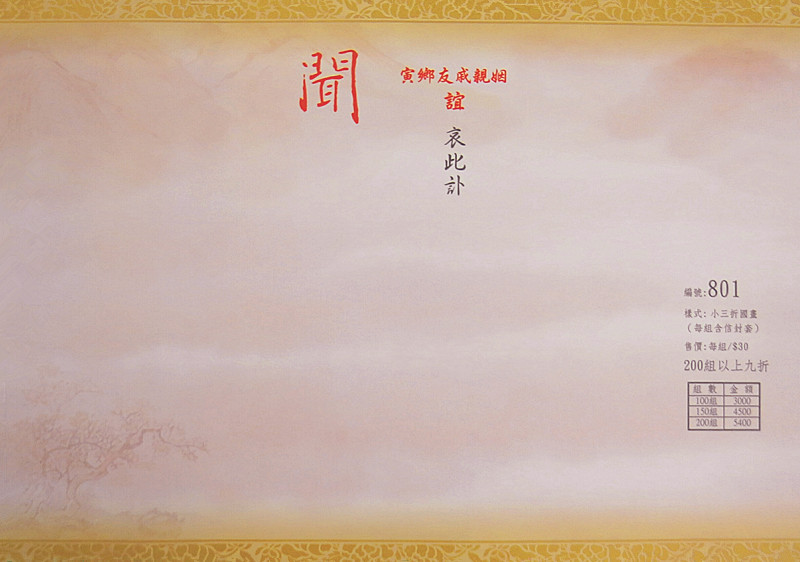 聞
寅鄉友戚親姻
誼
哀此訃
編號:801
樣式: 小三折國畫
（每組含信封套）
售價:每組/$30
200組以上九折
組 數 金 額
100組 3000
150組 4500
200組 5400